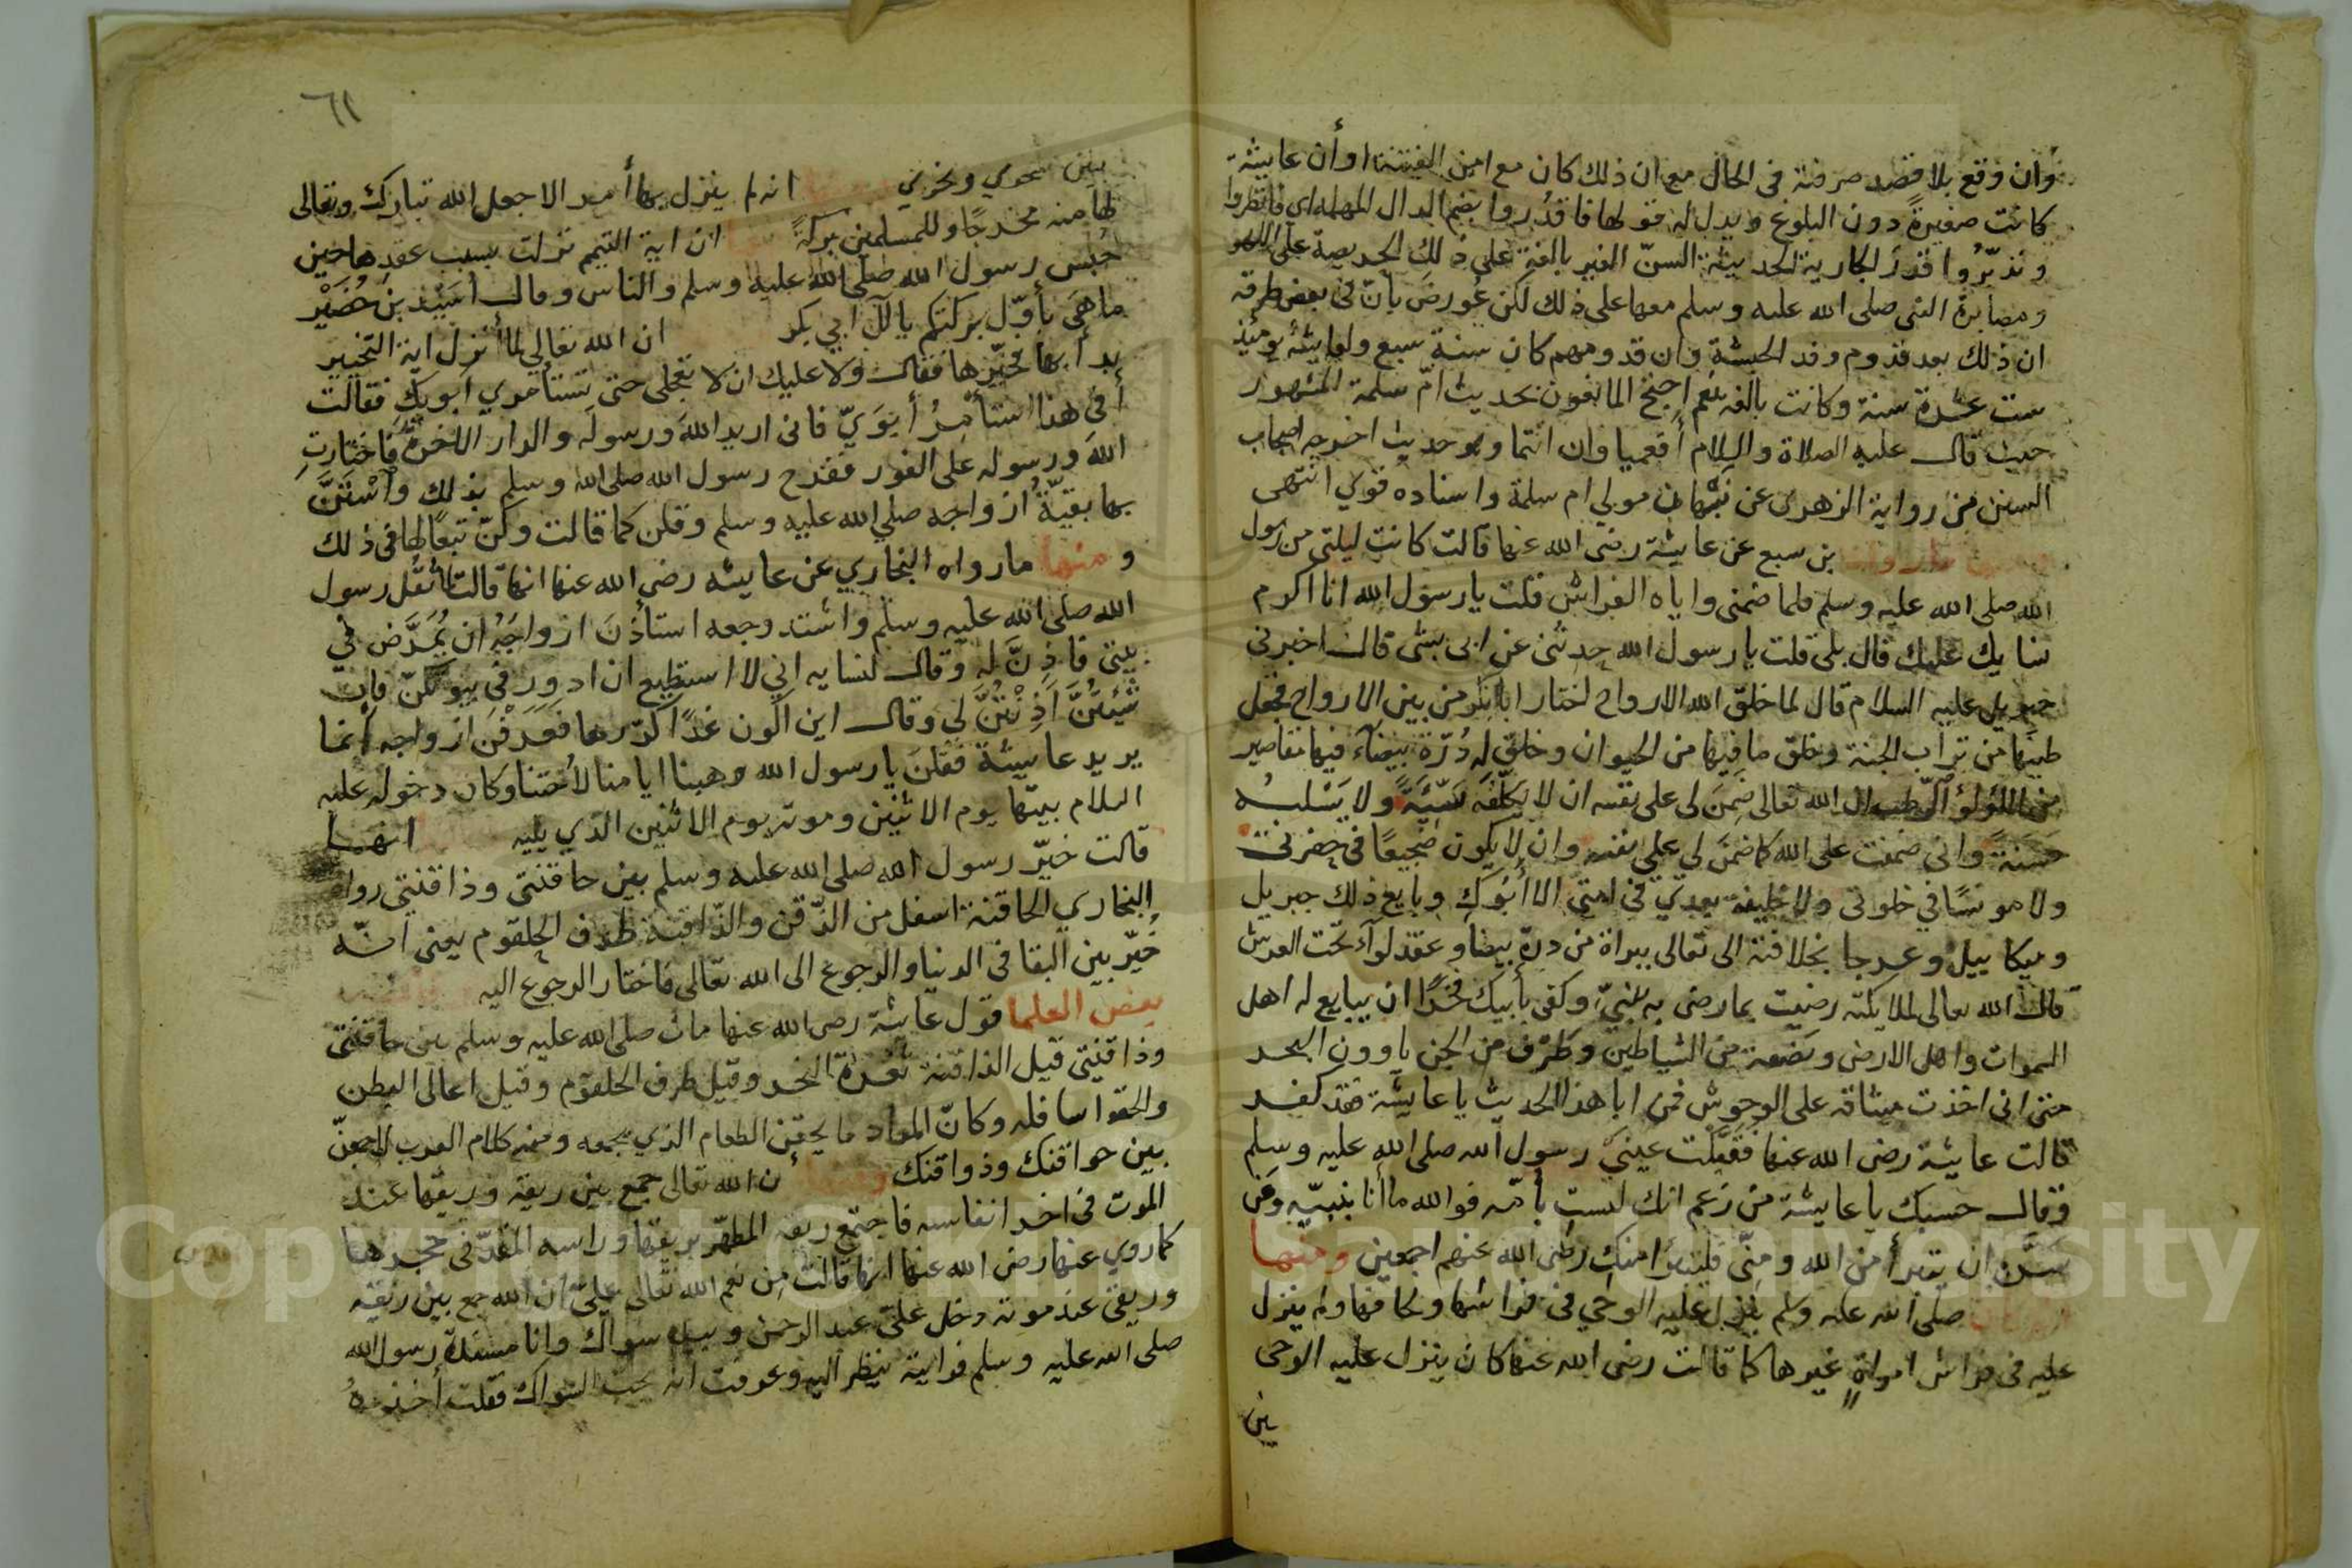 وان وقع بلا قصد صرفته في الحال مع ان ذلك كان مع امن الفتنة او أن عايشة
كانت صغيرةً دون البلوغ ويدل له قولها فاقدُروا بضم الدال المهملة اى فانظروا
وتدبّرُوا قدرَ الجارية الحديثة السنّ الغير بالغة على ذلك الحريصة على اللهو
ومصابرة النبى صلى الله عليه وسلم معها على ذلك لكن عُورضَ بأنّ فى بعض طرقه
ان ذلك بعد قدوم وفد الحبشة وان قدومهم كان سنة سبع ولعايشة يومئذ
ست عشرة سنة وكانت بالغه نعم احتج المانعون بحديث امّ سلمة المشهور
حيث قال عليه الصلاة والسلام أفعميا وان انتما وهو حديث اخرجه اصحاب
السنن من رواية الزهرى عن نبْهان مولي ام سلمة واسناده قوي انتهى
بن سبع عن عايشة رضى الله عنها قالت كانت ليلتى من رسول
الله صلى الله عليه وسلم فلما ضمنى واياه الفراش قلت يا رسول الله انا اكرم
نسايك عليك قال بلى قلت يا رسول الله حدثنى عن ابى بشى قال اخبرنى
جبريل عليه السلام قال لما خلق الله الارواح اختار ابا بكر من بين الارواح فجعل
طينها من تراب الجنة وخلق ما فيها من الحيوان وخلق له دُرّة بيضآء فيها مقاصير
من اللؤلؤ الرّطب ال الله تعالى ضَمِنَ لى على نفسه ان لا يكلّفَه سَيّئَةً ولا يَسْلبُه
حَسَنةً وانى ضمنت على الله كما ضمَنَ لي على نفسه وان لا يكون ضجيعًا فى حفرتى
ولا مونسًا في خلوتى ولا خليفة بعدي في امتى الا أبُوكِ وبايع ذلك جبريل
وميكاييل وعرجا بخلافته الى تعالى ببراة من درة بيضا وعقد لوآء تحت العرش
قال الله تعالى لملايكته رضيت بما رضى به نبيّ وكفى بأبيك فخرًا ان يبايع له اهل
السموات واهل الارض وبَضعة من الشياطين وطرْف من الجن ياوون البحر
حتى انى اخذت ميثاقه على الوحوش فمن ابا هذا الحديث يا عايشة فقد كفر
قالت عايشة رضى الله عنها فقبّلت عينيْ رسول الله صلى الله عليه وسلم
فقال حسبك يا عايشة من زعم انك لست بأمّه فوالله ما أنا بنبيّه ومَن
سَرَّه ان يتبرأ من الله ومِنّى فليتبرأ منكِ رضى الله عنهم اجمعين ومنها
صلى الله عليه وسلم ينزل عليه الوحي فى فراشها ولحافها ولم ينزل
عليه فى فراش امراةٍ غيرها كما قالت رضى الله عنها كان ينزل عليه الوحى
بين
٦١
بين سحري ونحري انه لم ينزل بها أمر الا جعل الله تبارك وتعالى
لها منه مخرجًا وللمسلمين بركةً ان اية التيمم نزلت بسبب عقدها حين
حُبس رسول الله صلى الله عليه وسلم والناس وقال اُسَيْد بن حُضَيْر
ما هى بأوّل بركتكم يا آل ابي بكر ان الله تعالي لما أنزل اية التخيير
بدأ بها فخيّرها فقال ولا عليك ان لا تعجلى حتى تستأمري ابويكِ فقالت
أفى هذا أستأمِرُ أبَوَيّ فانى اريد اللهَ ورسولَه والدار الاخرة فاختارت
اللهَ ورسوله على الفور ففرح رسول الله صلى الله وسلم بذلك واستَنَّ
بها بقيّةُ ازواجه صلي الله عليه وسلم وقلن كما قالت وكنّ تبعًا لها في ذلك
ومنها ما رواه البخاري عن عايشه رضى الله عنها انها قالت لما ثقُل رسول
الله صلى الله عليه وسلم واشتد وجعه استأذنَ ازواجَه ان يُمَرَّض في
بيتى فاَذِنَّ له وقال لنسايه اني لا استطيع ان ادور فى بيوتكنّ فان
شئتنّ أذِنتُنَّ لى وقال اين اكون غدًا كرّرها فعَرَفْنَ ازواجه أنما
يريد عايشة فقلن يا رسول الله وهبنا ايامنا لأختنا وكان دخوله عليه
السلام بيتها يوم الاثنين وموته يوم الاثنين الذي يليه انها
قالت خيّر رسول الله صلى الله عليه وسلم بين حاقنتى وذاقنتي رواه
البخاري الحاقنة اسفل من الذّقن والذّاقنة طرف الحلقوم يعنى انّه
خُيّر بين البقا في الدنيا والرجوع الى الله تعالى فاختار الرجوع اليه
بعض العلما قول عايشة رضى الله عنها مات صلى الله عليه وسلم بين حاقنتى
وذاقنتي قيل الذاقنة ثُغرة النحر وقيل طرف الحلقوم وقيل اعالى البطن
والحقوا سافله وكانّ المواد ما يحقن الطعام الذي يجمعه ومنه كلام العرب لاجمعنّ
بين حواقنك وذواقنك ومنها أن الله تعالى جمع بين ريقه وريقها عند
الموت فى اخر انفاسه فاجتمع ريقه المطهّر بريقها وراسه المفدّى فى حجرها
كما روي عنها رضى الله عنها انها قالت مِن نعم الله تعالى عليّ ان الله جمع بين ريقه
وريقى عند موته دخل علىّ عبد الرحمن وبيده سواك وانا مسندة رسول الله
صلى الله عليه وسلم فرايته ينظر اليه وعرفت انه يحب السواك فقلت أخذه